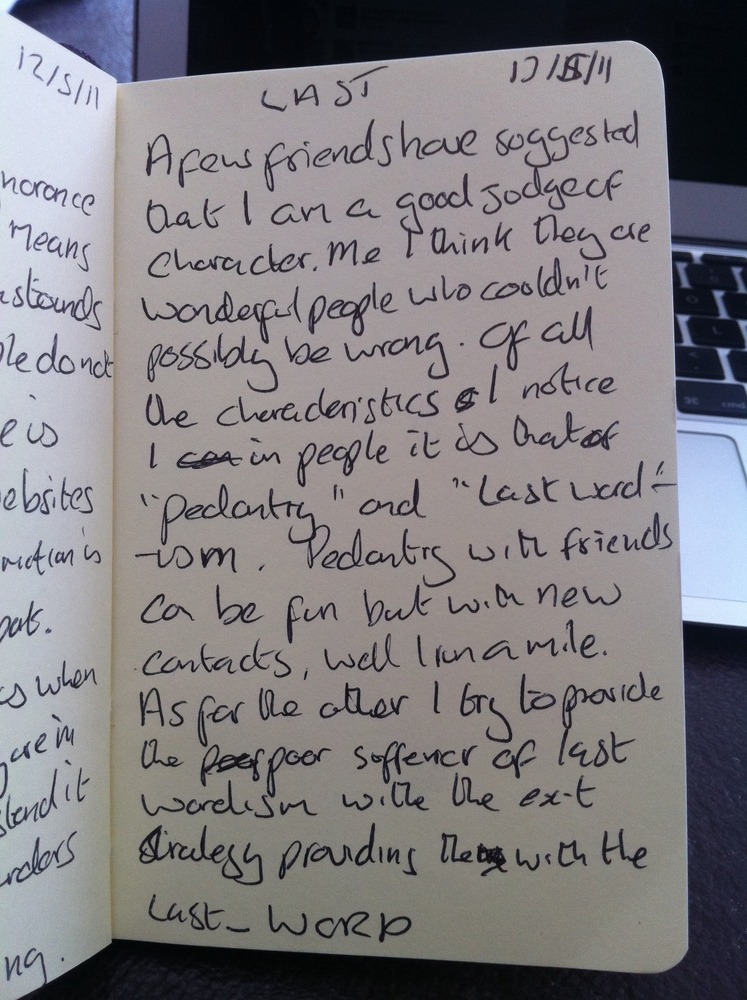 12/5/11
norance
means
astounds
ple do not
e is
ebsites
riction is
pats.
cs when
y are in
stand it
ng.
LAST 12/5/11
A few friends have suggested
that I am a good judge of
character. Me I think they are
wonderful people who couldn't
possibly be wrong. Of all
the characteristics I notice
I in people it is that of
"pedantry" and "Last word"-
-ism. Pedantry with friends
can be fun but with new
contacts, well I run a mile.
As for the other I try to provide
the poor sufferer of last
wordism with the exit
strategy providing them with the
Last_WORD
cmd